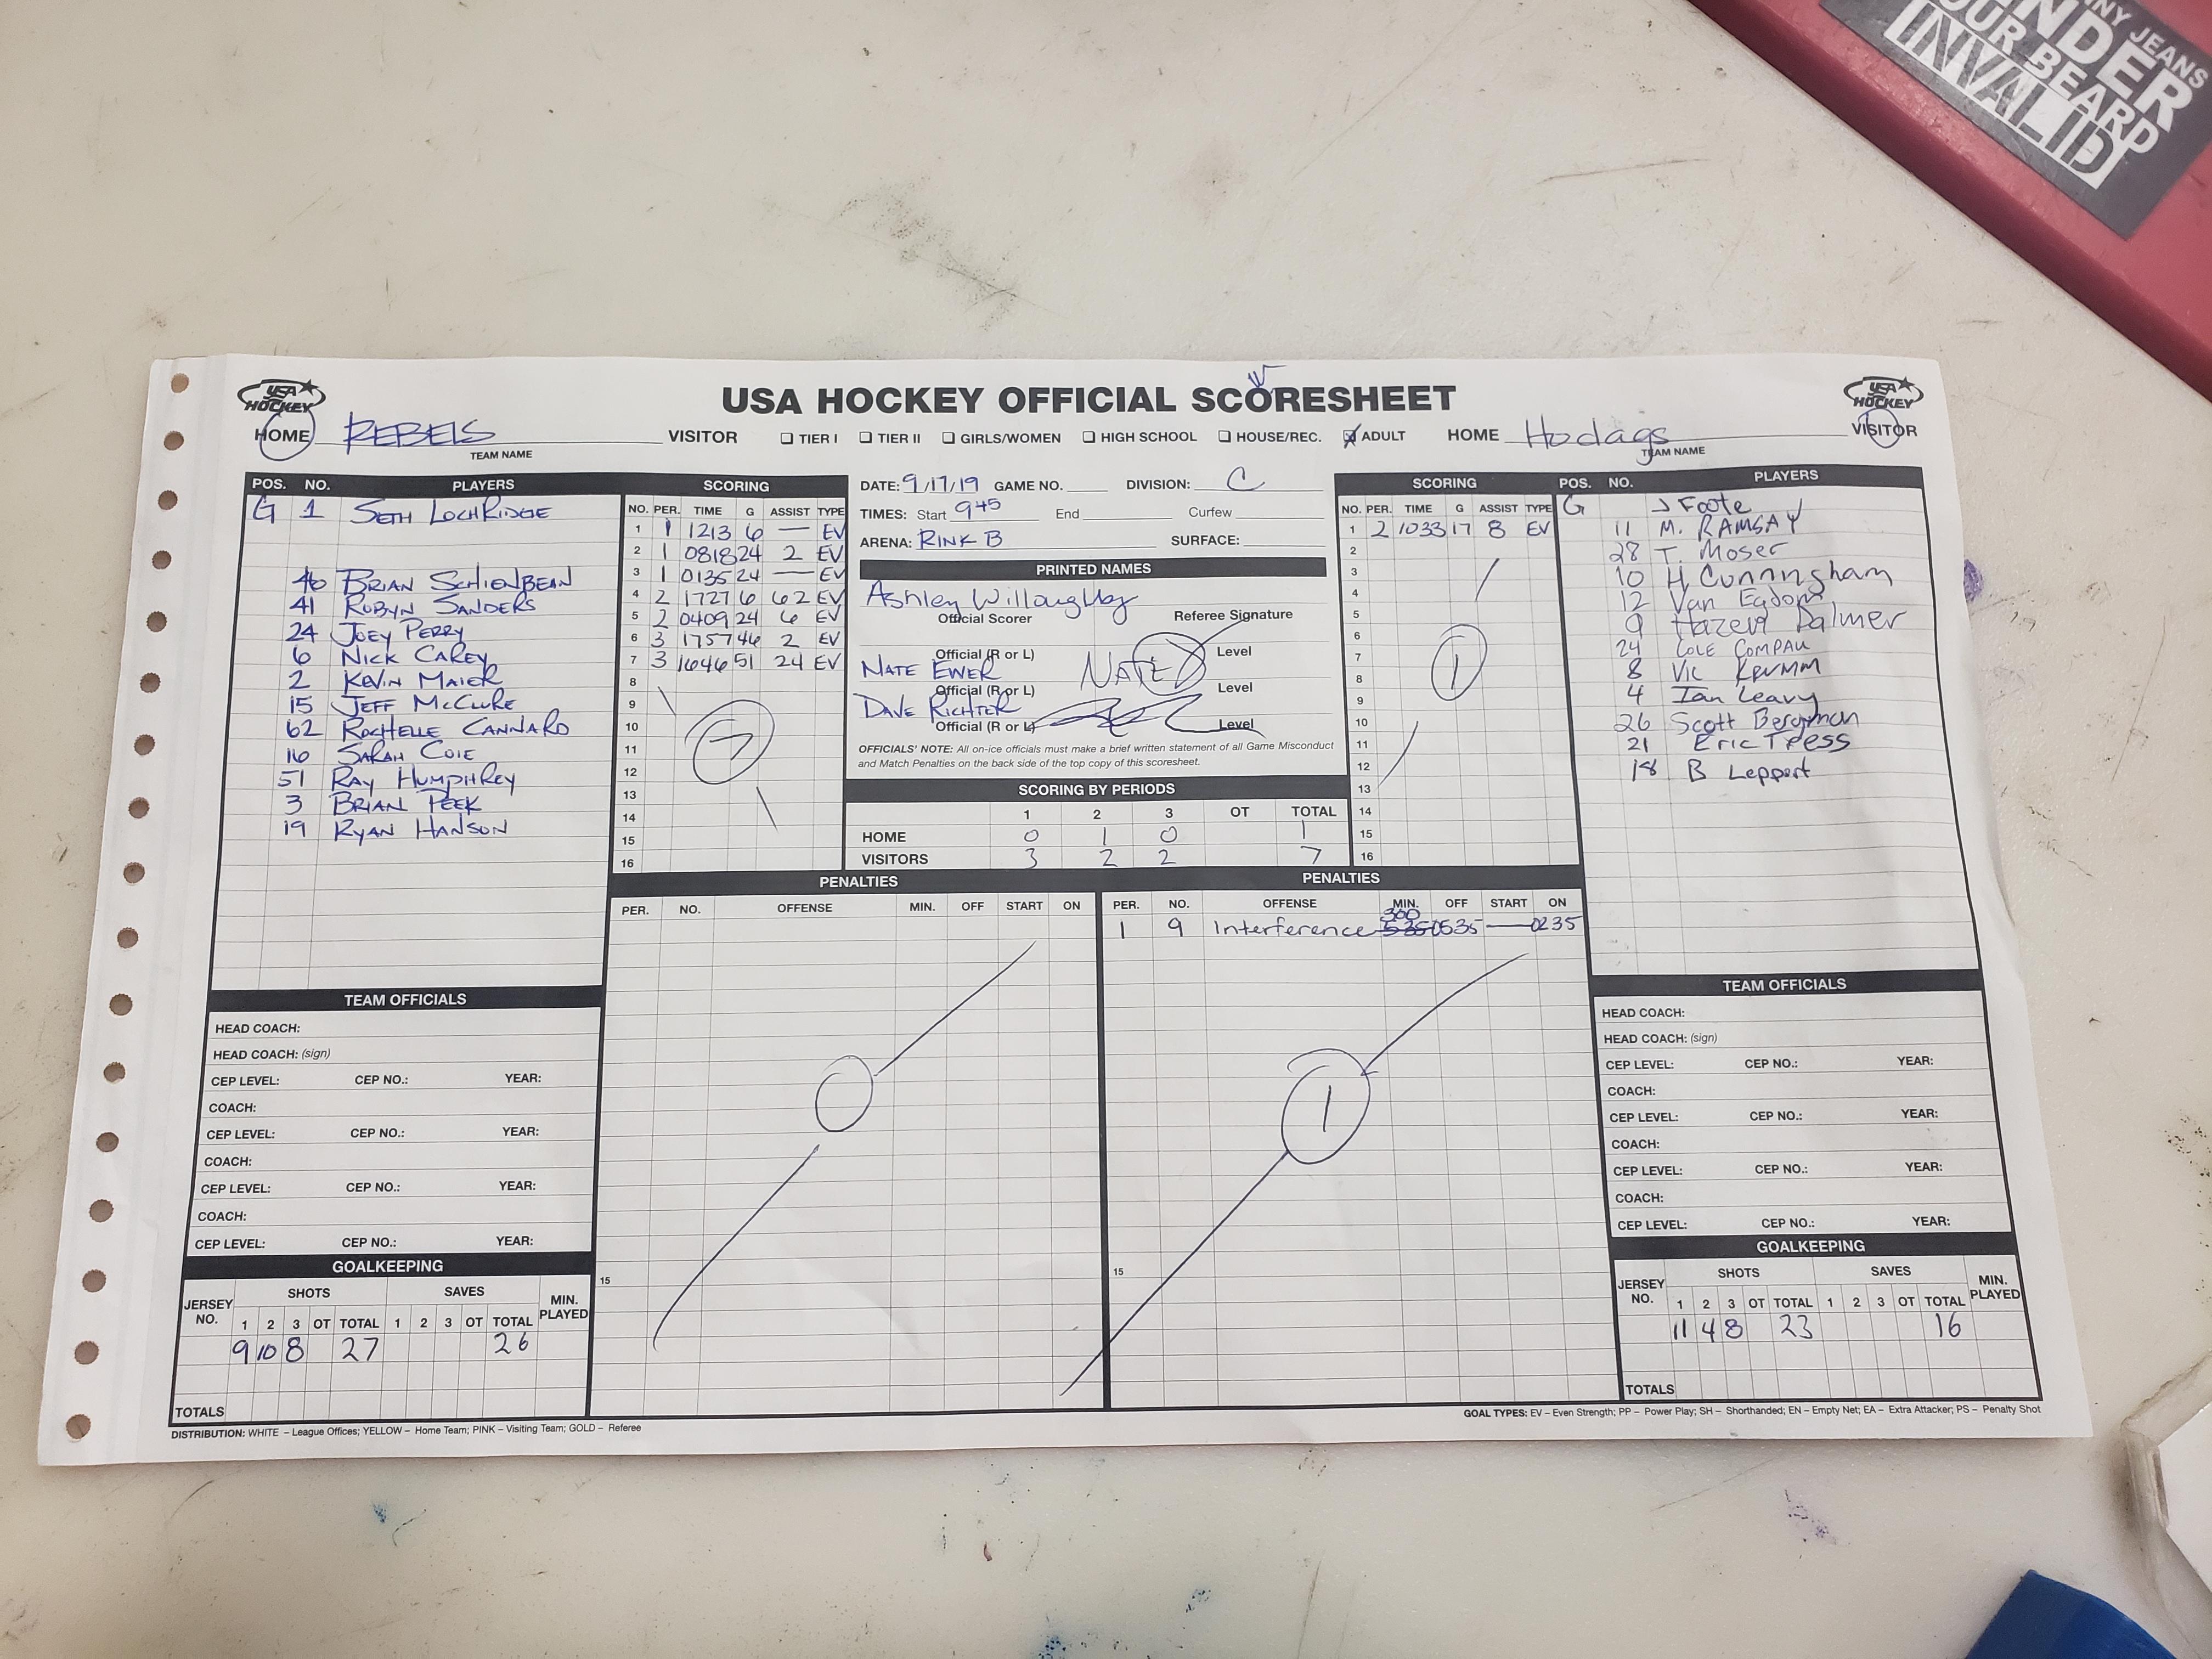 NNY JEANS
NDER
OUR BEARD
INVALID
USA HOCKEY OFFICIAL SCORESHEET
USA HOCKEY
USA HOCKEY
HOME REBELS VISITOR TIER I TIER II GIRLS/WOMEN HIGH SCHOOL HOUSE/REC. ADULT HOME Hodags VISITOR
TEAM NAME
TEAM NAME
POS. NO. PLAYERS
G 1 SETH LOCHRIDGE
46 BRIAN SCHIENBEAN
41 ROBYN SANDERS
24 JOEY PERRY
6 NICK CAREY
2 KEVIN MAIER
15 JEFF MCCLURE
62 ROCHELLE CANNARD
16 SARAH COIE
51 RAY HUMPHREY
3 BRIAN PEEK
19 RYAN HANSON
SCORING
NO. PER. TIME G ASSIST TYPE
1 1 1213 6 — EV
2 1 0818 24 2 EV
3 1 0135 24 — EV
4 2 1727 6 62 EV
5 2 0409 24 6 EV
6 3 1757 46 2 EV
7 3 1646 51 24 EV
8
9
10
11
12
13
14
15
16
7
DATE: 9/17/19 GAME NO. DIVISION: C
TIMES: Start 945 End Curfew
ARENA: RINK B SURFACE:
PRINTED NAMES
Ashley Willoughby
Official Scorer Referee Signature
Official (R or L) Level
NATE EWER NATE
Official (R or L) Level
DAVE RICHTER
Official (R or L) Level
OFFICIALS' NOTE: All on-ice officials must make a brief written statement of all Game Misconduct
and Match Penalties on the back side of the top copy of this scoresheet.
SCORING BY PERIODS
1 2 3 OT TOTAL
HOME 0 1 0 1
VISITORS 3 2 2 7
SCORING
NO. PER. TIME G ASSIST TYPE
1 2 1033 17 8 EV
2
3
4
5
6
7
8
9
10
11
12
13
14
15
16
1
POS. NO. PLAYERS
G J Foote
11 M. RAMSAY
28 T. Moser
10 H Cunningham
12 Van Egdom
9 Hazen Palmer
24 COLE COMPAU
8 VIC KRUMM
4 Ian Leavy
26 Scott Bergman
21 Eric Tress
18 B Leppert
PENALTIES
PER. NO. OFFENSE MIN. OFF START ON
0
15
PENALTIES
PER. NO. OFFENSE MIN. OFF START ON
300
1 9 Interference 535 0535 — 0235
1
15
TEAM OFFICIALS
HEAD COACH:
HEAD COACH: (sign)
CEP LEVEL: CEP NO.: YEAR:
COACH:
CEP LEVEL: CEP NO.: YEAR:
COACH:
CEP LEVEL: CEP NO.: YEAR:
COACH:
CEP LEVEL: CEP NO.: YEAR:
GOALKEEPING
JERSEY NO. SHOTS SAVES MIN. PLAYED
1 2 3 OT TOTAL 1 2 3 OT TOTAL
9 10 8 27 26
TOTALS
TEAM OFFICIALS
HEAD COACH:
HEAD COACH: (sign)
CEP LEVEL: CEP NO.: YEAR:
COACH:
CEP LEVEL: CEP NO.: YEAR:
COACH:
CEP LEVEL: CEP NO.: YEAR:
COACH:
CEP LEVEL: CEP NO.: YEAR:
GOALKEEPING
JERSEY NO. SHOTS SAVES MIN. PLAYED
1 2 3 OT TOTAL 1 2 3 OT TOTAL
11 4 8 23 16
TOTALS
DISTRIBUTION: WHITE – League Offices; YELLOW – Home Team; PINK – Visiting Team; GOLD – Referee
GOAL TYPES: EV – Even Strength; PP – Power Play; SH – Shorthanded; EN – Empty Net; EA – Extra Attacker; PS – Penalty Shot